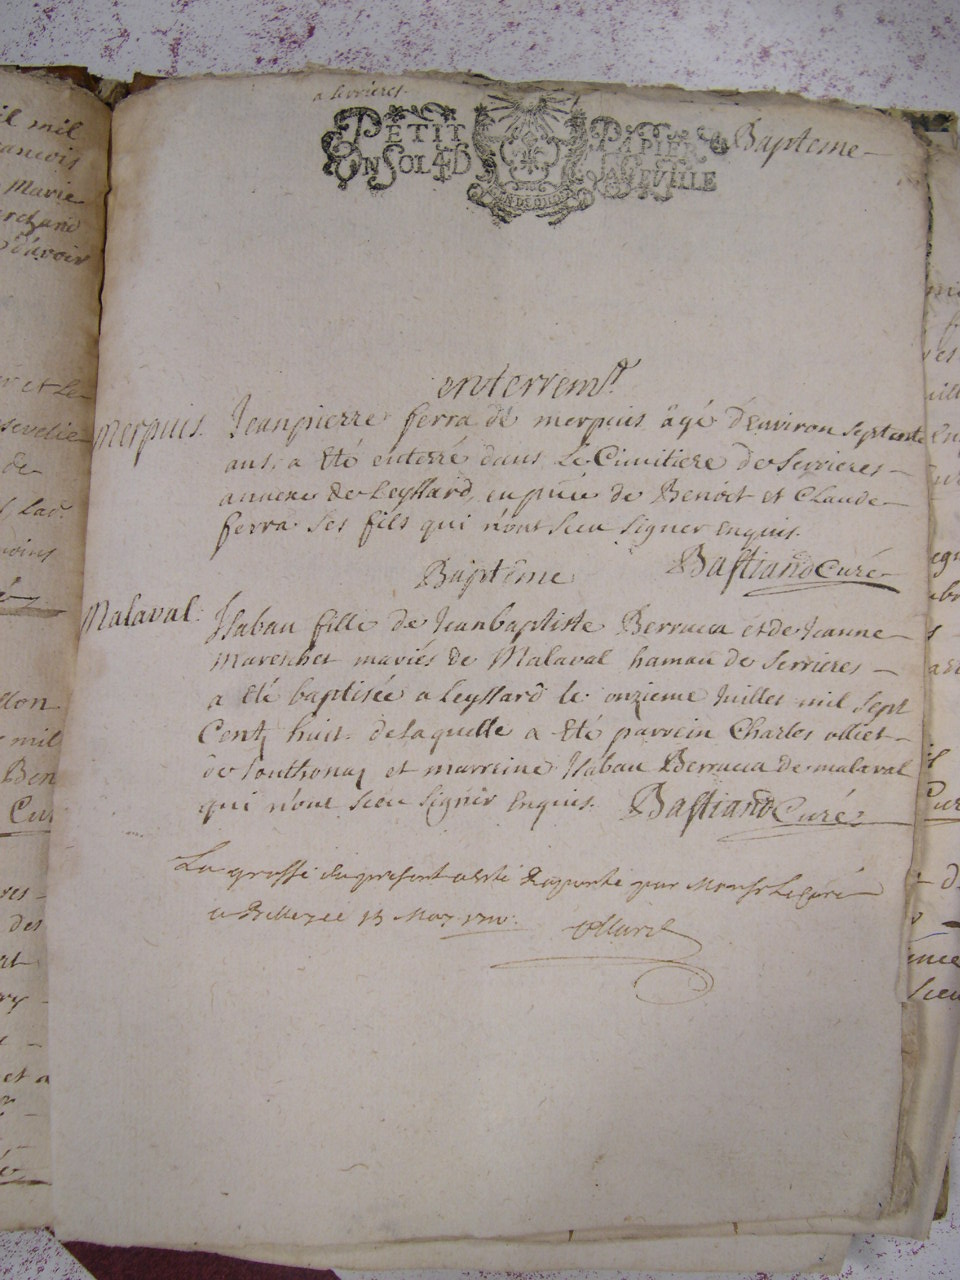 a serrieres
PETIT PAPIER
UN SOL 4D LA FEVILLE
Bapteme
enterrem.t
merpuis. Jeanpierre ferra de merpuis âgé d'Environ septente
ans. a Eté enterré dans Le Cimitiere de Serrieres
annexe de Leyssard, en pñce de Benoit et Claude
ferra ses fils qui n'ont sceu signer Enquis.
Bastiand Curé
Baptême
Malaval. Isabau fille de Jeanbaptiste Berrucca et de Jeanne
mariés de Malaval hamau de Serrieres
a été baptisée a Leyssard le onzieme Juillet mil sept
Cent huit. de laquelle a Eté parrein Charles olliet
de Southonax et marreine Isabau Berrucca de malaval
qui n'ont sceu signer Enquis. Bastiand Curé
La grosse du present a esté Raporté par Monsr Le Curé
a 13 May 1710.
il mil
francois
Marie
marchand
d'avoir
et Le
ensevelie
de
mil
Ben
Cur
des
et a